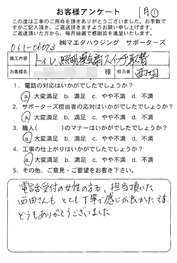 お客様アンケート
1月①
この度は工事のご用命を頂きありがとうございました。お手数です
がご記入頂き、ご返送頂きますようお願い申し上げます。
ご返送頂いた方の中から、毎月抽選で感謝品を進呈しております。
㈱マエダハウジング サポーターズ
施工内容
トイレ照明換気扇スイッチ取替
お名前
様
担当者
西田
1. 電話の対応はいかがでしたでしょうか?
a 大変満足 b. 満足 c. やや不満 d. 不満
2. サポーターズ担当者はいかがでしたでしょうか?
a 大変満足 b. 満足 c. やや不満 d. 不満
3. 職人( )のマナーはいかがでしたでしょうか?
a. 大変満足 b. 満足 c. やや不満 d. 不満
4. 工事の仕上がりはいかがでしたでしょうか?
a 大変満足 b. 満足 c. やや不満 d. 不満
5. その他、ご意見・ご要望をお聞かせ下さい。
電話受付の女性の方も、担当頂いた
西田さんも とても丁寧で感じが良かったです。
どうもありがとうございました